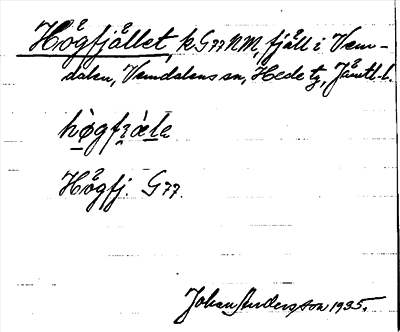 Högfjället, k G77 NM, fjäll i Vem-
dalen, Vemdalens sn, Hede tg, Jämtl. l.
hògfjàle
Högfj. G77.
Johan Andersson 1935.